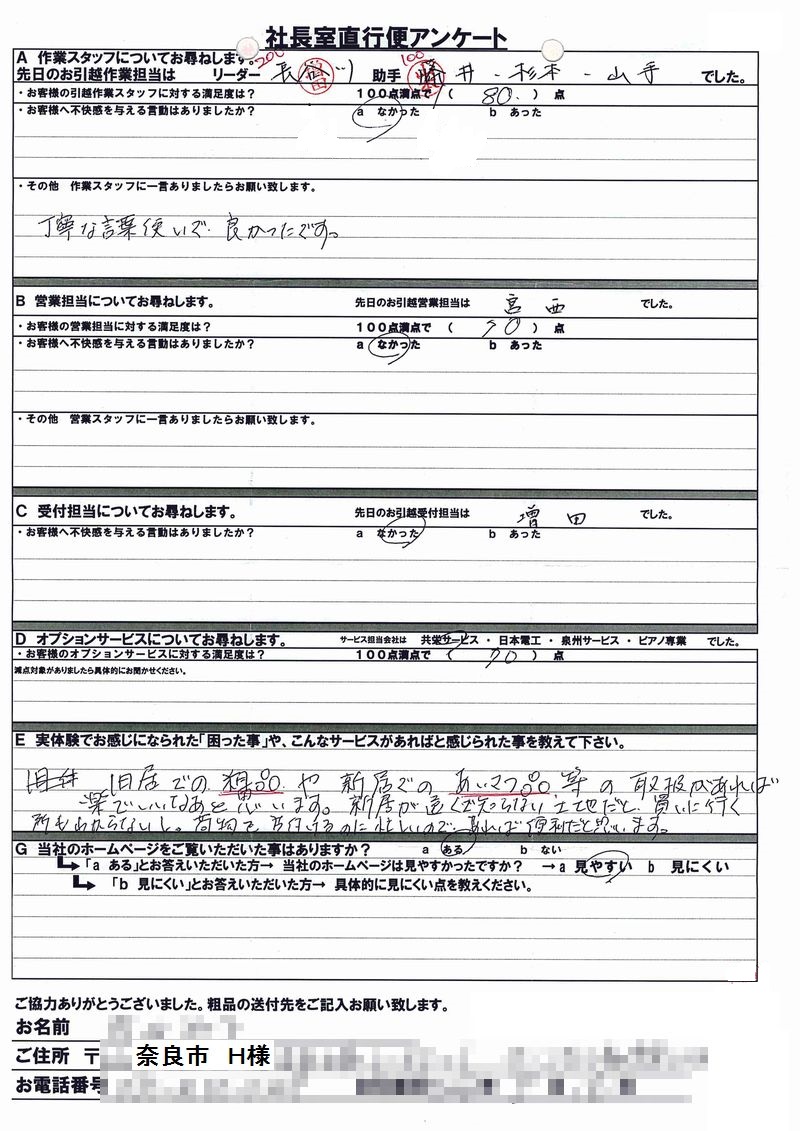 社長室直行便アンケート
A 作業スタッフについてお尋ねします。 200 100
先日のお引越作業担当は リーダー 長谷川 助手 藤井・杉本・山手 でした。
・お客様の引越作業スタッフに対する満足度は? 100点満点で ( 80. ) 点
・お客様へ不快感を与える言動はありましたか? a なかった b あった
・その他 作業スタッフに一言ありましたらお願い致します。
丁寧な言葉使いで良かったです。
B 営業担当についてお尋ねします。 先日のお引越営業担当は 宮西 でした。
・お客様の営業担当に対する満足度は? 100点満点で ( 70 ) 点
・お客様へ不快感を与える言動はありましたか? a なかった b あった
・その他 営業スタッフに一言ありましたらお願い致します。
C 受付担当についてお尋ねします。 先日のお引越受付担当は 増田 でした。
・お客様へ不快感を与える言動はありましたか? a なかった b あった
D オプションサービスについてお尋ねします。 サービス担当会社は 共栄サービス ・ 日本電工 ・ 泉州サービス ・ ピアノ専業 でした。
・お客様のオプションサービスに対する満足度は? 100点満点で ( 70 ) 点
減点対象がありましたら具体的にお聞かせください。
E 実体験でお感じになられた「困った事」や、こんなサービスがあればと感じられた事を教えて下さい。
旧居での粗品や新居でのあいさつ品等の取扱があれば
楽でいいなあと思います。新居が遠くで知らない土地だと、買いに行く
所もわからないし。荷物で片付けるのに忙しいので、あれば便利だと思います。
G 当社のホームページをご覧いただいた事はありますか? a ある b ない
「a ある」とお答えいただいた方→ 当社のホームページは見やすかったですか? →a 見やすい b 見にくい
「b 見にくい」とお答えいただいた方→ 具体的に見にくい点を教えください。
ご協力ありがとうございました。粗品の送付先をご記入お願い致します。
お名前
ご住所 〒 奈良市 H様
お電話番号